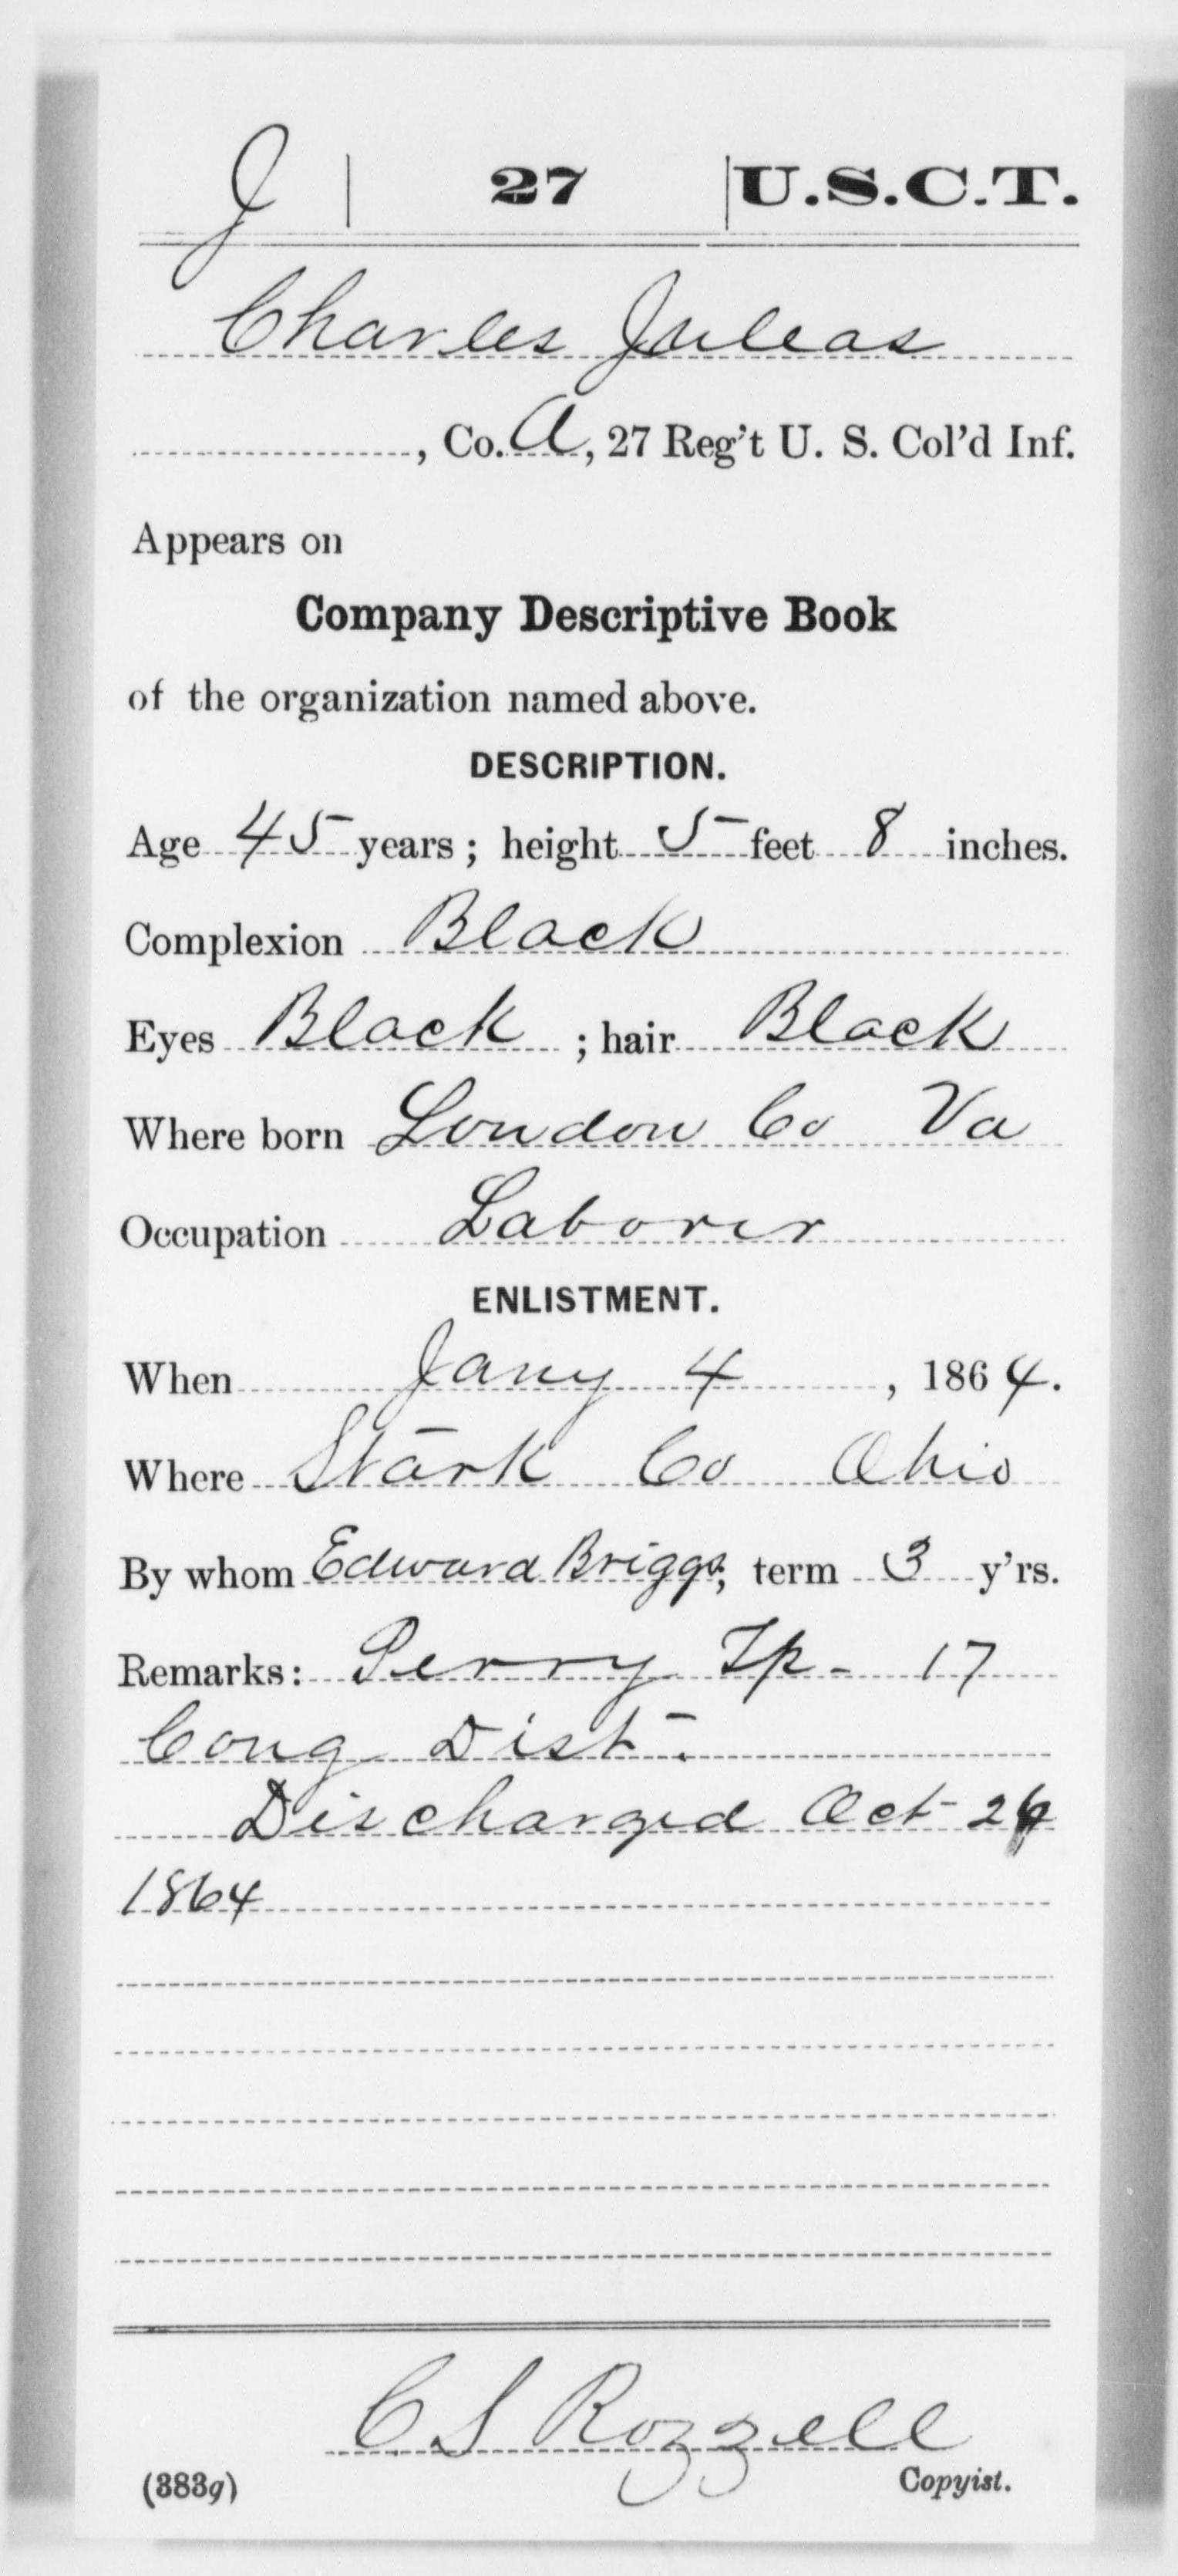 J | 27 | U.S.C.T.
Charles Juleas
, Co. A, 27 Reg't U. S. Col'd Inf.
Appears on
Company Descriptive Book
of the organization named above.
DESCRIPTION.
Age 45 years; height 5 feet 8 inches.
Complexion Black
Eyes Black ; hair Black
Where born London Co Va
Occupation Laborer
ENLISTMENT.
When Jany 4, 1864.
Where Stark Co Ohio
By whom Edward Briggs; term 3 y'rs.
Remarks: Perry Tp - 17
Cong Dist.
Discharged Oct
1864
C S Rozzell
(383g) Copyist.